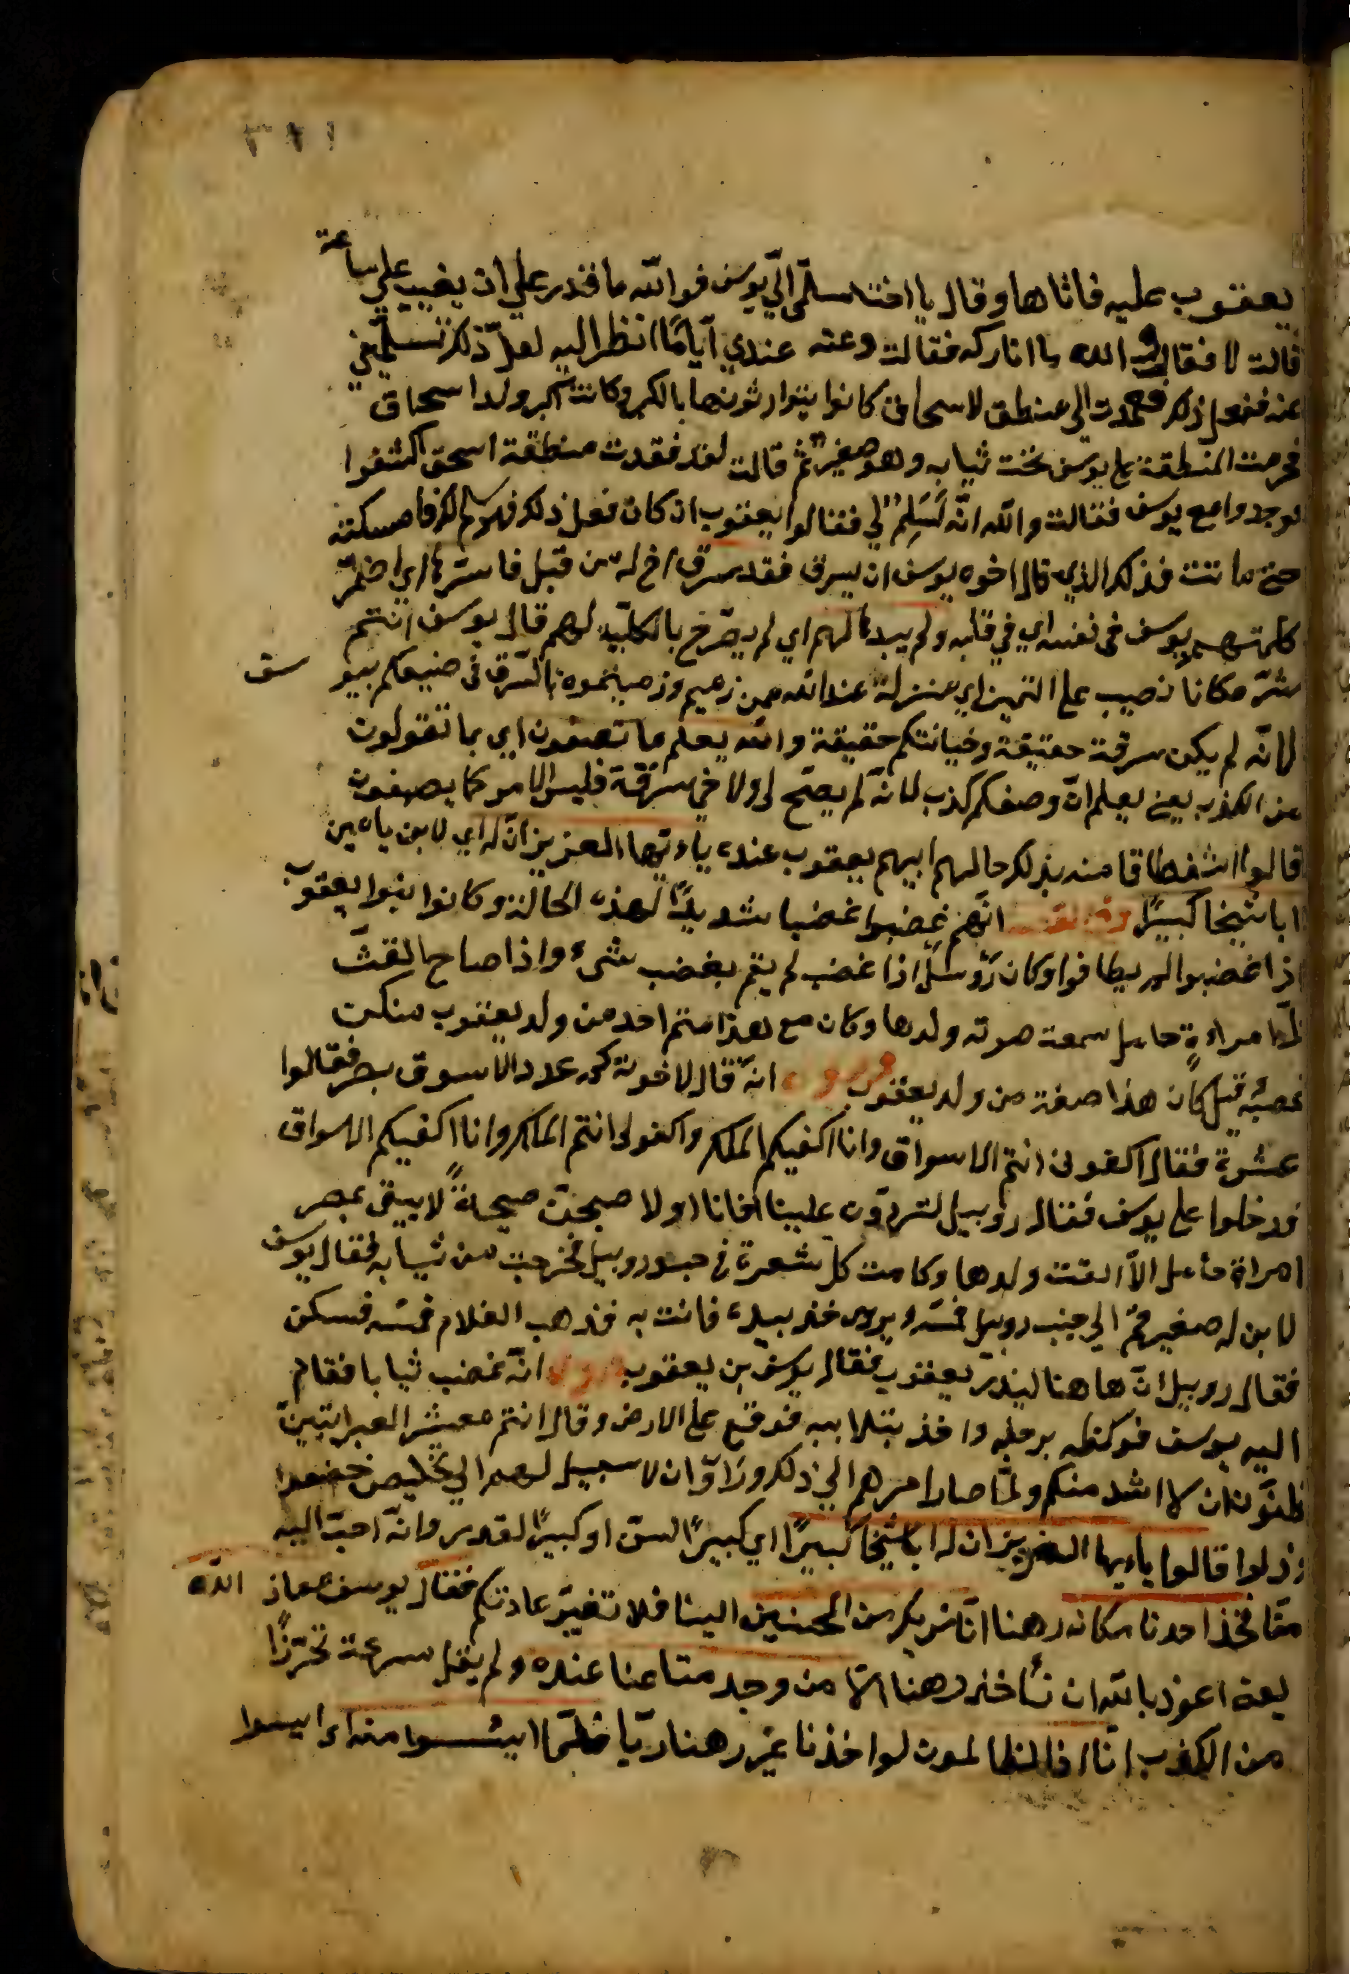 يعقوب عليه فاتاها وقال يا اختاه سلّمى اليّ يوسف فوالله ما اقدر علي ان يغيب علي ساعة
قالت لا فقال والله ما انا تاركه فقالت دعه عندي ايّامًا انظر اليه لعلّ ذلك تسلّيني
عنه ففعل ذلك فعمدت الى منطقة لاسحاق كانوا يتوارثونها بالكبر وكانت اكبر ولد اسحاق
فحزمت المنطقة على يوسف تحت ثيابه وهو صغير ثمّ قالت لقد فقدت منطقة اسحق اكشفوا
فوجدوا مع يوسف فقالت والله انّه لَسَلِمٌ لي فقال يعقوب ان كان فعل ذلك فهو سلم لك فامسكته
حتى ماتت فذلك الذي قال اخوه يوسف ان يسرق فقد سرق اخ له من قبل فاسرّها اي اضمر
كلمتهم يوسف فى نفسه اي في قلبه ولم يبدها لهم اي لم يصرّح بالكليّة لهم قال يوسف انتم
شرّ مكانا نصيب على التميز اي منزلة عند الله ممن رميتموه بالسّرق فى صنيعكم بيوسف
لانّه لم يكن سرقة حقيقة وخيانتكم حقيقة والله يعلم ما تصفون اي بما تقولون
من الكذب يعنى يعلم انّ وصفكم كذب لانّه لم يصّح لى ولا خى سرقة فليس الامر كما يصفون
قالوا استعطافا منه بذلك حالهم ابيهم يعقوب عنده ياءيّها العزيز انّ له اي لابن يامين
ابا شيخا كبيرًا وفى القصة انّهم غضبوا غضبا شديدًا لهذه الحالة وكانوا بنوا يعقوب
اذا غضبوا لم يطاقوا وكان روبيل اذا غضب لم يقم بغضبه شىء واذا صاح القت
كلّ امراءةٍ حامل سمعت صوته ولدها وكان مع هذا متى احد من ولد يعقوب سكن
غضبُه قيل كان هذا صفة من ولد يعقوب وروى انّه قال لاخوته كم عدد الاسوق بمصر فقالوا
عشرة فقال اكفونى انتم الاسواق وانا اكفيكم الملك واكفونى انتم الملك وانا اكفيكم الاسواق
فدخلوا على يوسف فقال روبيل لتردّون علينا اخانا او لا صيحنّ صيحةً لا يبقى بمصر
امراة حامل الاّ القت ولدها وكامت كلّ شعرة فى جسد روبيل فخرجت من ثيابه فقال يوسف
لابن له صغير قم الى جنب روبيل فمسّه ويروى خذ بيده فاتت به فذهب الغلام فمسّه فسكن
فقال روبيل انّ هاهنا لبذر يعقوب فقال يوسف بن يعقوب وروى انّه غضب ثانيا فقام
اليه يوسف فوكضه برجله واخذ بتلابيبه فوقع على الارض وقال انتم معشر العبرانيّين
تظنّون ان لا اشد منكم ولمّا صار امرهم الى ذلك وراوا ان لا سبيل لهم الى تخليصه خضعوا
وذلوا قالوا ياءيها العزيز ان له ابا شيخا كبيرًا اي كبيرًا السنّ او كبيرًا القدر وانّه احبّ اليه
منّا فخذ احدنا مكانه رهنا انّا نريك من المحسنين الينا فلا تغيّر عادتكم فقال يوسف معاذ الله
يعنى اعوذ بالله ان نأخذ رهنا الاّ من وجد متاعنا عنده ولم يقل سرق تحرّزًا
من الكذب انّا اذا لظالمون لو اخذنا غير رهنا فلمّا ايئسوا منه اي ايسوا